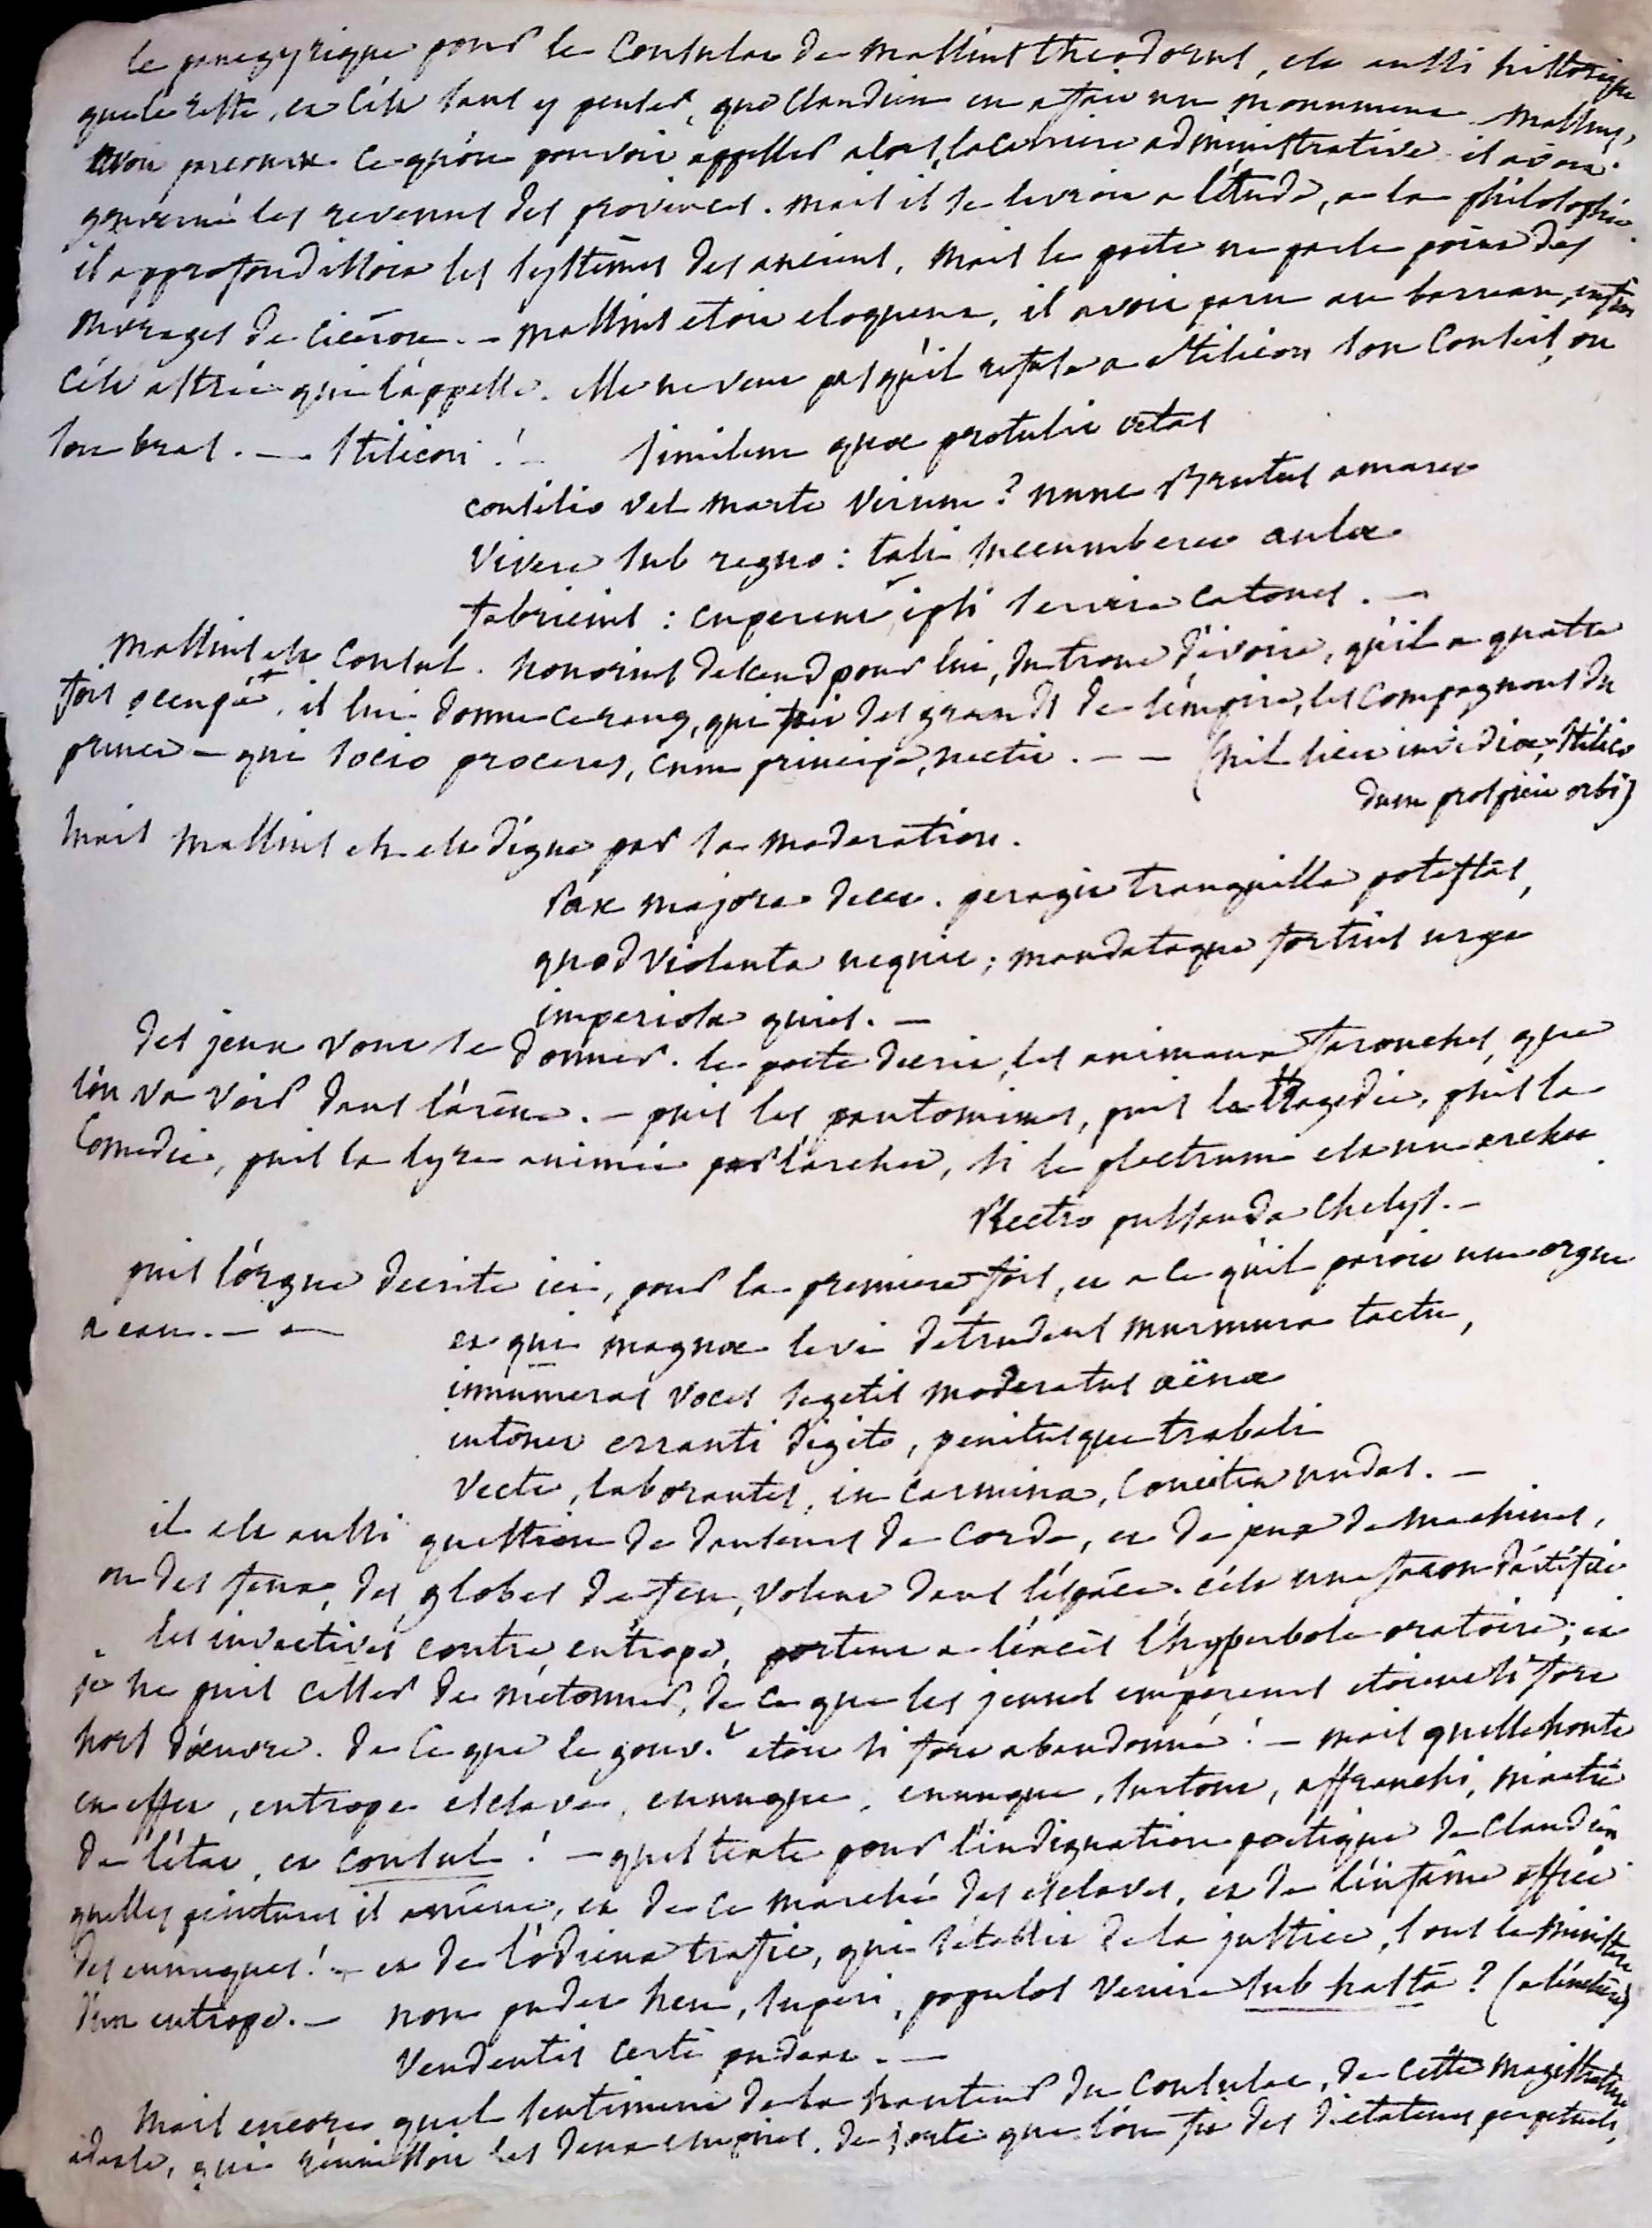 le panegyrique pour le Consulat de Mallius theodorus, est aussi historique
que le reste, et c'est sans y penser, que Claudien en a fait un monument. Mallius,
avoit parcouru ce qu'on pouvoit appeller alors, la carriere administrative il avoit
gouverné les revenus des provinces. mais il se livroit a l'étude, a la philosophie.
il approfondissoit les systêmes des anciens, mais le poete ne parle point des
ouvrages de Ciceron. – Mallius etoit eloquent, il avoit paru au barreau, enfin
c'est astrée qui l'appelle. elle ne veut pas qu'il refuse a Stilicon son Conseil, ou
son bras. — Stilicon ! – similem quæ protulit ætas
consilio vel marte virum ? nunc Brutus amaret
vivere sub regno : tali succumberet aulæ
fabricius : cuperent ipsi servire catones. —
Mallius est Consul. honorius descend pour lui, du trone d'ivoire, qu'il a quatre
fois occupé +, il lui donne ce rang, qui fait des grands de l'empire, les compagnons du
prince – qui socio proceres, cum principe, nectit. – – (nil licet invidiæ, Stilico
dum prospicit orbi)
mais Mallius est digne par sa moderation.
Pax majora decet. peragit tranquilla potestas,
quod violenta nequit ; mandataque fortius urget
imperiosa quies. —
des jeux vont se donner. le poete decrit, les animaux farouches, que
l'on va voir dans l'arêne. – puis les pantomimes, puis la tragedie, puis la
Comedie, puis la lyre animée par l'archet, si le plectrum est un archet
Plectro pulsanda chelys. –
puis l'orgue decrite ici, pour la premiere fois, et a ce qu'il paroit une orgue
a eau. — et qui magnæ levi detrudens murmura tactu,
innumeras voces segetis moderatus aënæ
intonet erranti digito, penitusque trabali
vecte, laborantes, in carmina, concitat undas. —
il est aussi question de danseurs de corde, et de jeux de machines,
ou des feux, des globes de feu, volent dans l'espace. c'est une façon d'artifice
les invectives contre, eutrope, portent a l'excès l'hyperbole oratoire ; et
je ne puis cesser de m'etonner, de ce que les jeunes empereurs etoient si fort
hors d'œuvre. de ce que le gouv.t etoit si fort abandonné ! – mais quelle honte
en effet, eutrope esclave, eunuque, eunuque, surtout, affranchi, maitre
de l'état, et consul ! – quel texte pour l'indignation poetique de Claudien
quelles peintures il amêne, et de ce marché des esclaves, et de l'infâme office
des eunuques ! – et de l'odieux trafic, qui s'établit de la justice, sous le ministere
d'un eutrope. — non pudet heu, superi, populos venire sub hasta ? (a l'enchere)
vendentis certe pudeat. —
Mais encore quel sentiment de la hauteur du Consulat, de cette Magistrature
, qui réunissoit les deux empires. de sorte que l'on fit des dictateurs perpetuels,